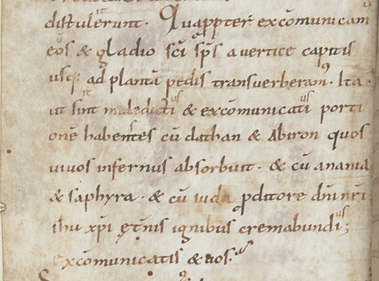 distulerunt. Quappter excōmunicam
eos & gladio sc̄i sp̄s a uertice capitis
usq; ad plantā pedis transuerberam⁹. Ita
ut sint maledicti & excōmunicati porti
onē habentes cū dathan & abiron quos
uiuos infernus absorbuit. & cū anania
& saphyra. & cū iuda p̱ditore dn̄i nr̄i
ih̄u xp̄i et̄nis ignibus cremabundi;
excōmunicatis & uos.